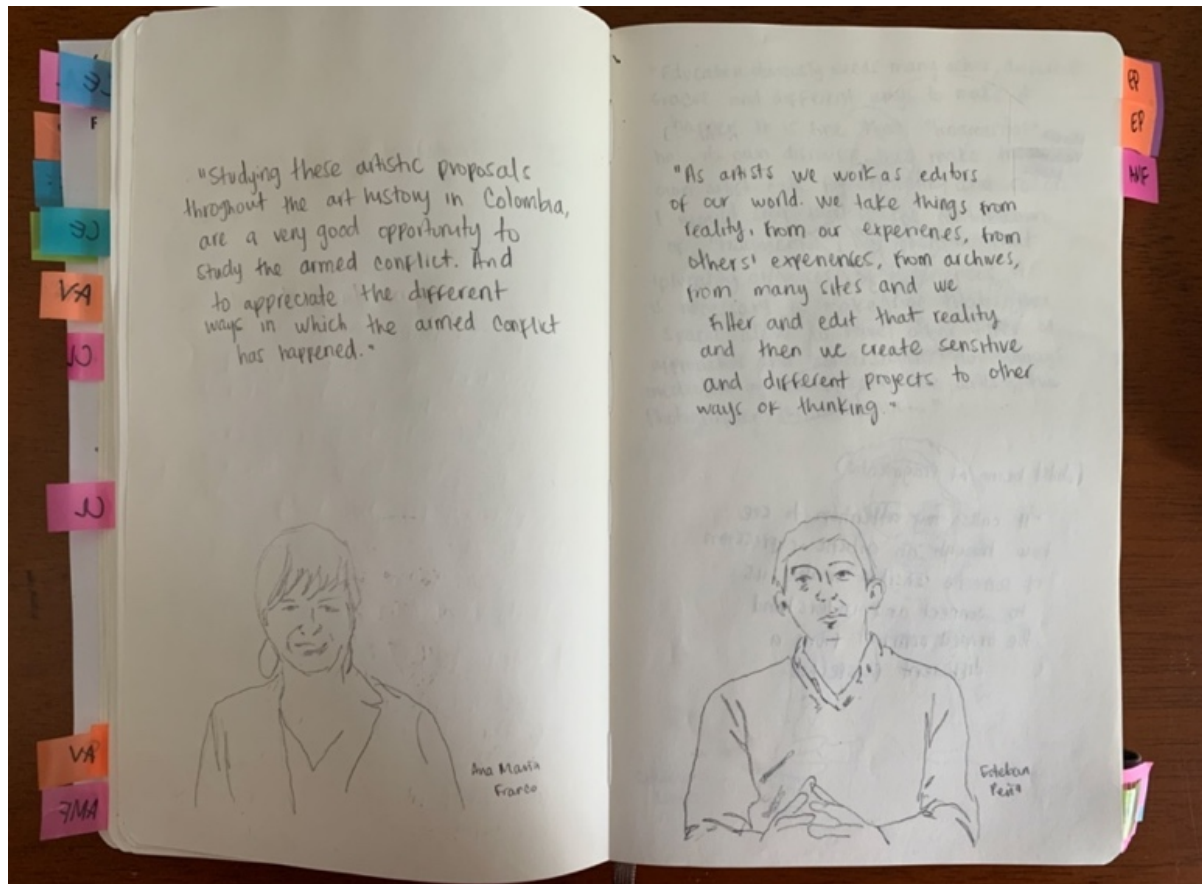 "Studying these artistic proposals
throghout the art history in Colombia,
are a very good opportunity to
study the armed conflict. And
to appreciate the different
ways in which the armed conflict
has happened."
Ana María
Franco
"As artists we work as editors
of our world. We take things from
reality, from our experienes, from
others' experiences, from archives,
from many sites and we
filter and edit that reality
and then we create sensitive
and different projects to other
ways of thinking."
Esteban
Peña
CE
F
CE
VA
CL
CL
VA
AMF
EP
EP